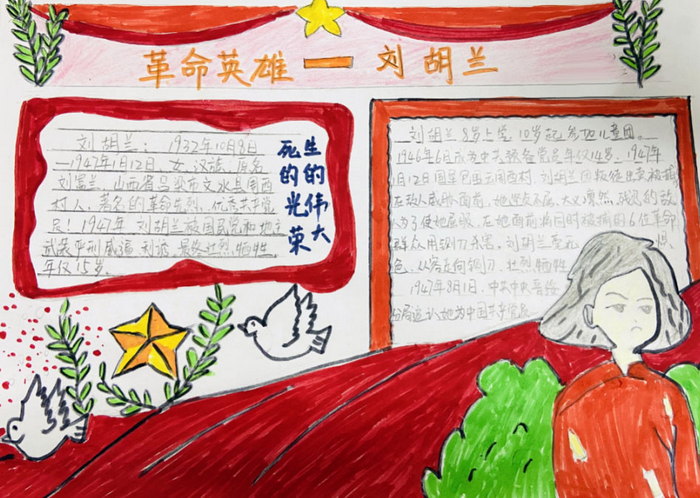 革命英雄 — 刘胡兰
刘胡兰：1932年10月8日
—1947年1月12日 女，汉族，原名
刘富兰，山西省吕梁市文水县云周西
村人，著名的革命先烈，优秀共产党
员！1947年，刘胡兰被国民党和地主
武装严刑威逼 最终壮烈牺牲
年仅15岁。
生的伟大
死的光荣
刘胡兰8岁上学，10岁起参加儿童团。
1946年6月 为中共预备党员年仅14岁。1947年
1月12日国军 云周西村，刘胡兰因叛徒出卖被捕
在敌人威胁面前，她坚贞不屈，大义凛然，残忍的敌
人为了使她屈服，在她面前将同时被捕的6位革命
群众用铡刀杀害。刘胡兰毫无 惧
色，从容走向铡刀，壮烈牺牲
1947年8月1日，中共中央晋绥
分局追认她为中国共产党员